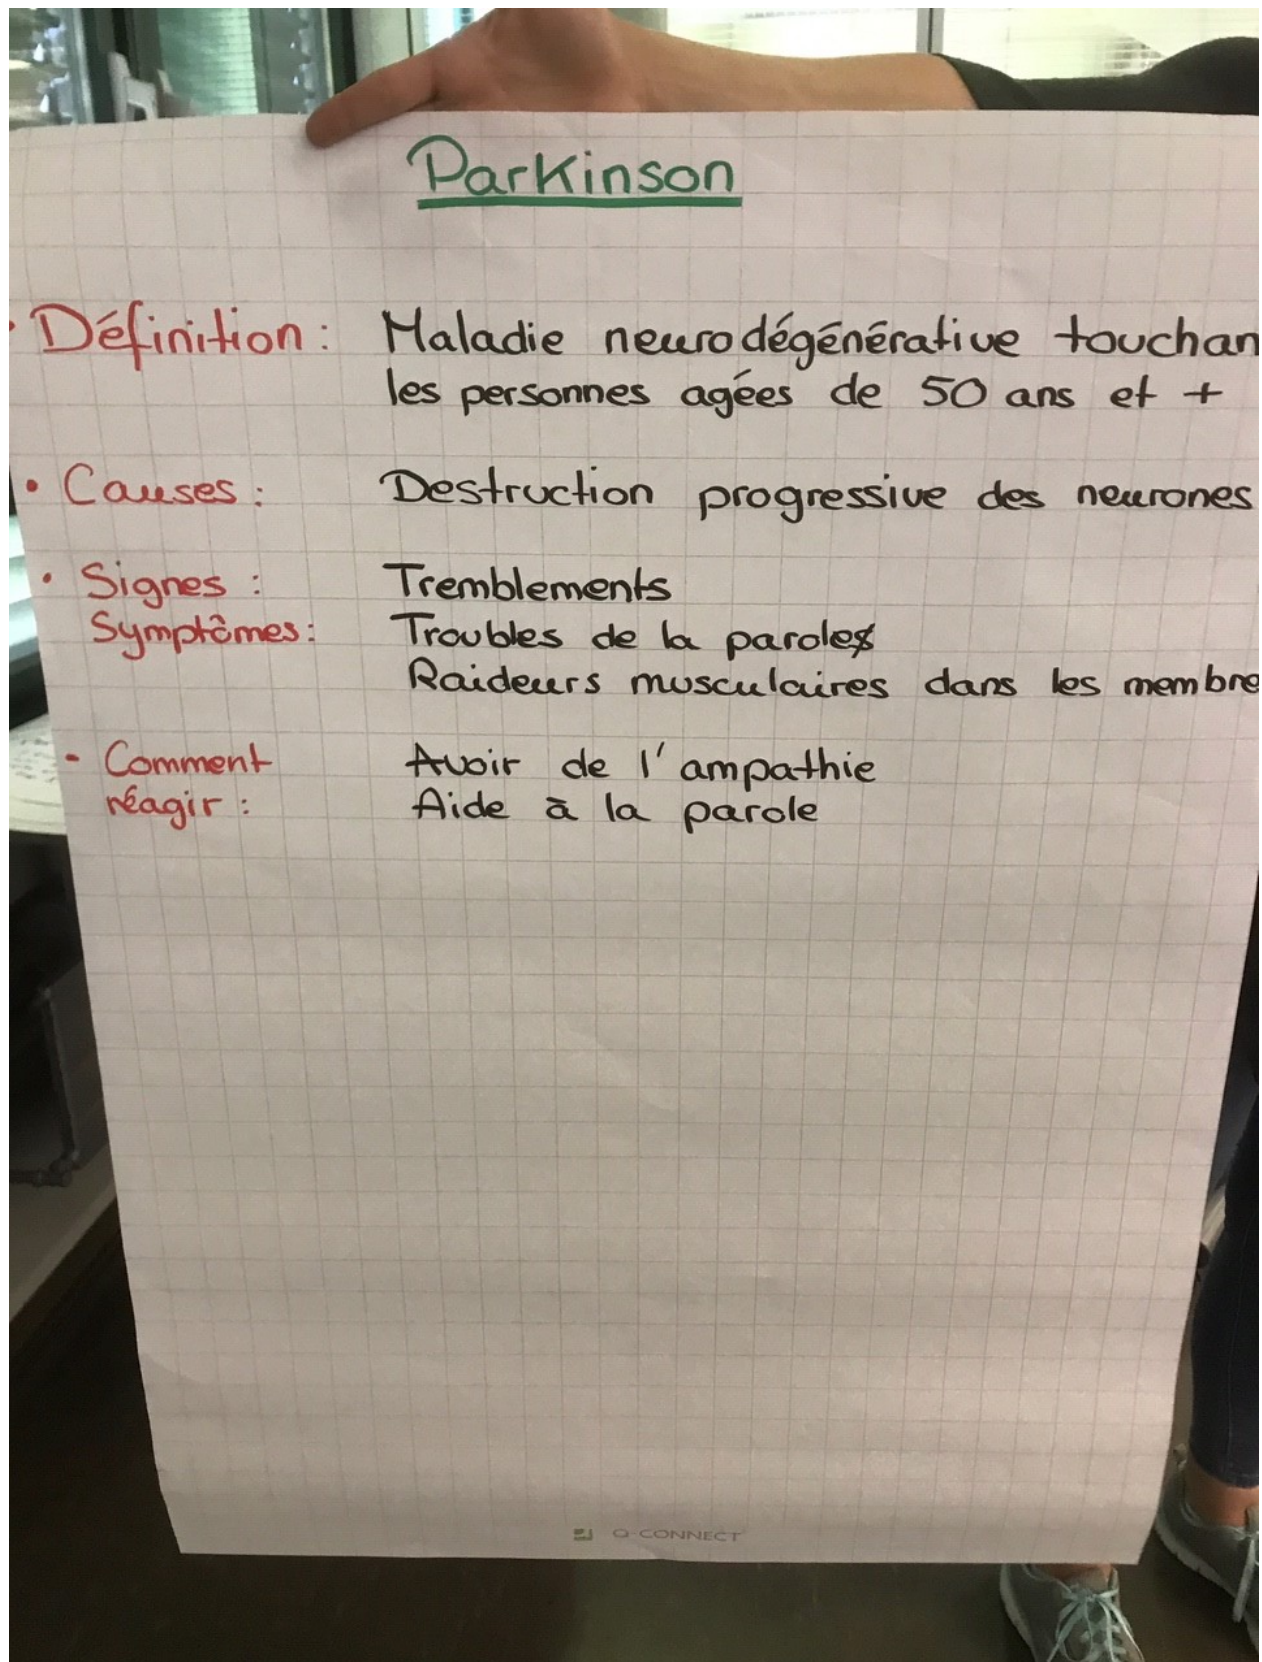 Parkinson
• Définition : Maladie neurodégénérative touchan
les personnes agées de 50 ans et +
• Causes : Destruction progressive des neurones
• Signes : Tremblements
Symptômes : Troubles de la parole
Raideurs musculaires dans les membre
- Comment Avoir de l'ampathie
réagir : Aide à la parole
Q-CONNECT